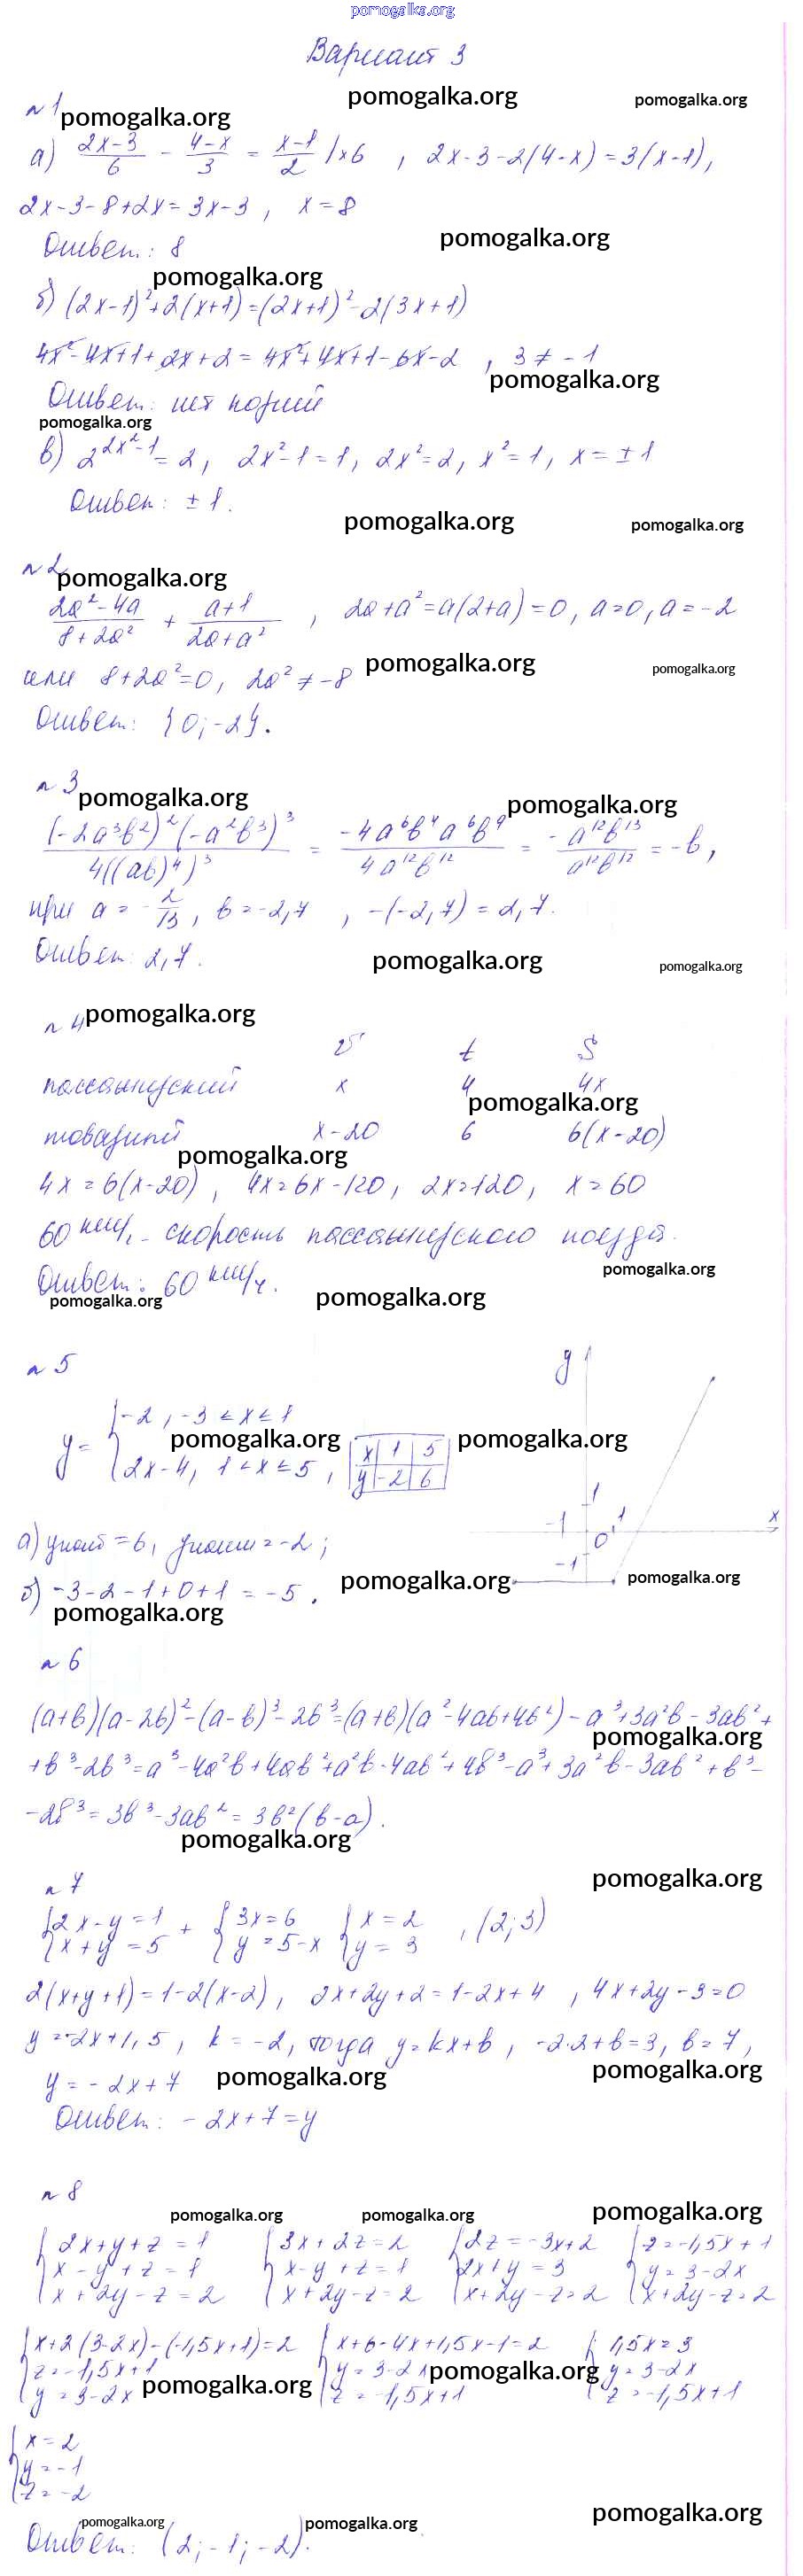 pomogalka.org
Вариант 3
pomogalka.org pomogalka.org
n 1 pomogalka.org
а) (2x-3)/6 - (4-x)/3 = (x-1)/2 /×6 , 2x-3-2(4-x)=3(x-1),
2x-3-8+2x=3x-3, x=8
Ответ: 8 pomogalka.org
pomogalka.org
б) (2x-1)²+2(x+1)=(2x+1)²-2(3x+1)
4x²-4x+1+2x+2=4x²+4x+1-6x-2 , 3≠-1
pomogalka.org
Ответ: нет корней
pomogalka.org
в) 2^(2x²-1)=2, 2x²-1=1, 2x²=2, x²=1, x=±1
Ответ: ±1.
pomogalka.org pomogalka.org
n 2 pomogalka.org
(2a²-4a)/(8+2a²) + (a+1)/(2a+a²) , 2a+a²=a(2+a)=0, a=0, a=-2
или 8+2a²=0, 2a²≠-8 pomogalka.org pomogalka.org
Ответ: {0;-2}.
n 3 pomogalka.org pomogalka.org
((-2a³b²)²(-a²b³)³)/(4((ab)⁴)³) = (-4a⁶b⁴a⁶b⁹)/(4a¹²b¹²) = (-a¹²b¹³)/(a¹²b¹²) = -b,
при a=-2/13, b=-2,7 , -(-2,7)=2,7.
Ответ: 2,7.
pomogalka.org pomogalka.org
n 4 pomogalka.org
v t S
пассажирский x 4 4x
pomogalka.org
товарный x-20 6 6(x-20)
pomogalka.org
4x=6(x-20), 4x=6x-120, 2x=120, x=60
60 км/ч - скорость пассажирского поезда.
pomogalka.org
Ответ: 60 км/ч.
pomogalka.org pomogalka.org
n 5
y
y= { -2, -3≤x≤1
pomogalka.org pomogalka.org
2x-4, 1<x≤5, x 1 5
y -2 6
1
-1 0 1 x
-1
а) yнаиб=6, yнаим=-2;
pomogalka.org pomogalka.org
б) -3-2-1+0+1=-5.
pomogalka.org
n 6
(a+b)(a-2b)²-(a-b)³-2b³=(a+b)(a²-4ab+4b²)-a³+3a²b-3ab²+
pomogalka.org
+b³-2b³=a³-4a²b+4ab²+a²b-4ab²+4b³-a³+3a²b-3ab²+b³-
-2b³=3b³-3ab²=3b²(b-a).
pomogalka.org
pomogalka.org
n 7
{2x-y=1 + {3x=6 {x=2 , (2;3)
x+y=5 y=5-x y=3
2(x+y+1)=1-2(x-2), 2x+2y+2=1-2x+4 , 4x+2y-3=0
y=-2x+1,5, k=-2, тогда y=kx+b, -2·2+b=3, b=7,
y=-2x+7 pomogalka.org pomogalka.org
Ответ: -2x+7=y
n 8
pomogalka.org pomogalka.org pomogalka.org
{2x+y+z=1 {3x+2z=2 {2z=-3x+2 {z=-1,5x+1
x-y+z=1 x-y+z=1 2x+y=3 y=3-2x
x+2y-z=2 x+2y-z=2 x+2y-z=2 x+2y-z=2
{x+2(3-2x)-(-1,5x+1)=2 {x+6-4x+1,5x-1=2 {1,5x=3
z=-1,5x+1 y=3-2x y=3-2x
y=3-2x z=-1,5x+1 z=-1,5x+1
pomogalka.org pomogalka.org
{x=2
y=-1
z=-2
pomogalka.org
pomogalka.org pomogalka.org
Ответ: (2;-1;-2).